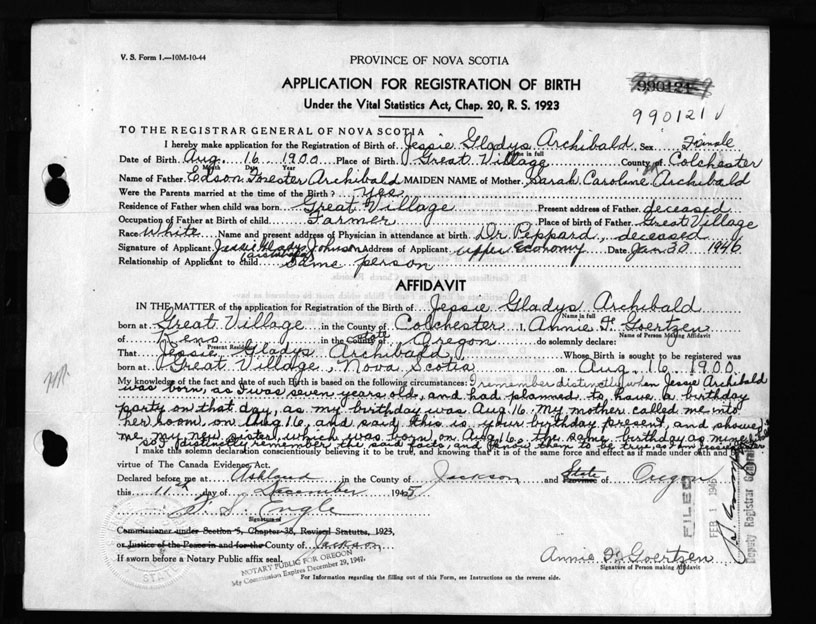 V. S. Form 1.—10M-10-44
PROVINCE OF NOVA SCOTIA
APPLICATION FOR REGISTRATION OF BIRTH
Under the Vital Statistics Act, Chap. 20, R. S. 1923
990121
990121
TO THE REGISTRAR GENERAL OF NOVA SCOTIA
I hereby make application for the Registration of Birth of Jessie Gladys Archibald Sex Female
Name in full
Date of Birth Aug. 16 1900 Place of Birth Great Village County of Colchester
Month Day Year
Name of Father Edson Forester Archibald MAIDEN NAME of Mother Sarah Caroline Archibald
Were the Parents married at the time of the Birth? Yes
Residence of Father when child was born Great Village Present address of Father deceased
Occupation of Father at Birth of child Farmer Place of birth of Father Great Village
Race White Name and present address of Physician in attendance at birth Dr Peppard, deceased
Signature of Applicant Jessie Gladys Johnson Address of Applicant Upper Economy Date Jan 30 1946
(Archibald)
Relationship of Applicant to child same person
AFFIDAVIT
IN THE MATTER of the application for Registration of the Birth of Jessie Gladys Archibald
Name in full
born at Great Village in the County of Colchester I, Annie F. Goertzen
Name of Person Making Affidavit
of Keno in the County State of Oregon do solemnly declare:
Present Residence
That Jessie Gladys Archibald Whose Birth is sought to be registered was
born at Great Village, Nova Scotia on Aug. 16 1900
My knowledge of the fact and date of such Birth is based on the following circumstances: I remember distinctly when Jessie Archibald
was born, as I was seven years old, and had planned to have a birthday
party on that day, as my birthday was Aug 16. My mother called me into
her room, on Aug 16, and said this is your birthday present, and showed
me my new sister, which was born on Aug 16, the same birthday as mine
so I distinctly remember the said facts, and know them to be true, as I am
I make this solemn declaration conscientiously believing it to be true, and knowing that it is of the same force and effect as if made under oath and by
virtue of The Canada Evidence Act.
Declared before me at Ashland in the County of Jackson and Province State of Oregon
this 11th day of December 1945
Engle
Signature of
Commissioner under Section 5, Chapter 38, Revised Statutes, 1923,
or Justice of the Peace in and for the County of Jackson
If sworn before a Notary Public affix seal.
NOTARY PUBLIC FOR OREGON
My Commission Expires December 29, 1947.
Annie F. Goertzen
Signature of Person making Affidavit
For Information regarding the filling out of this Form, see Instructions on the reverse side.
FILED
FEB 1 194
Deputy Registrar General